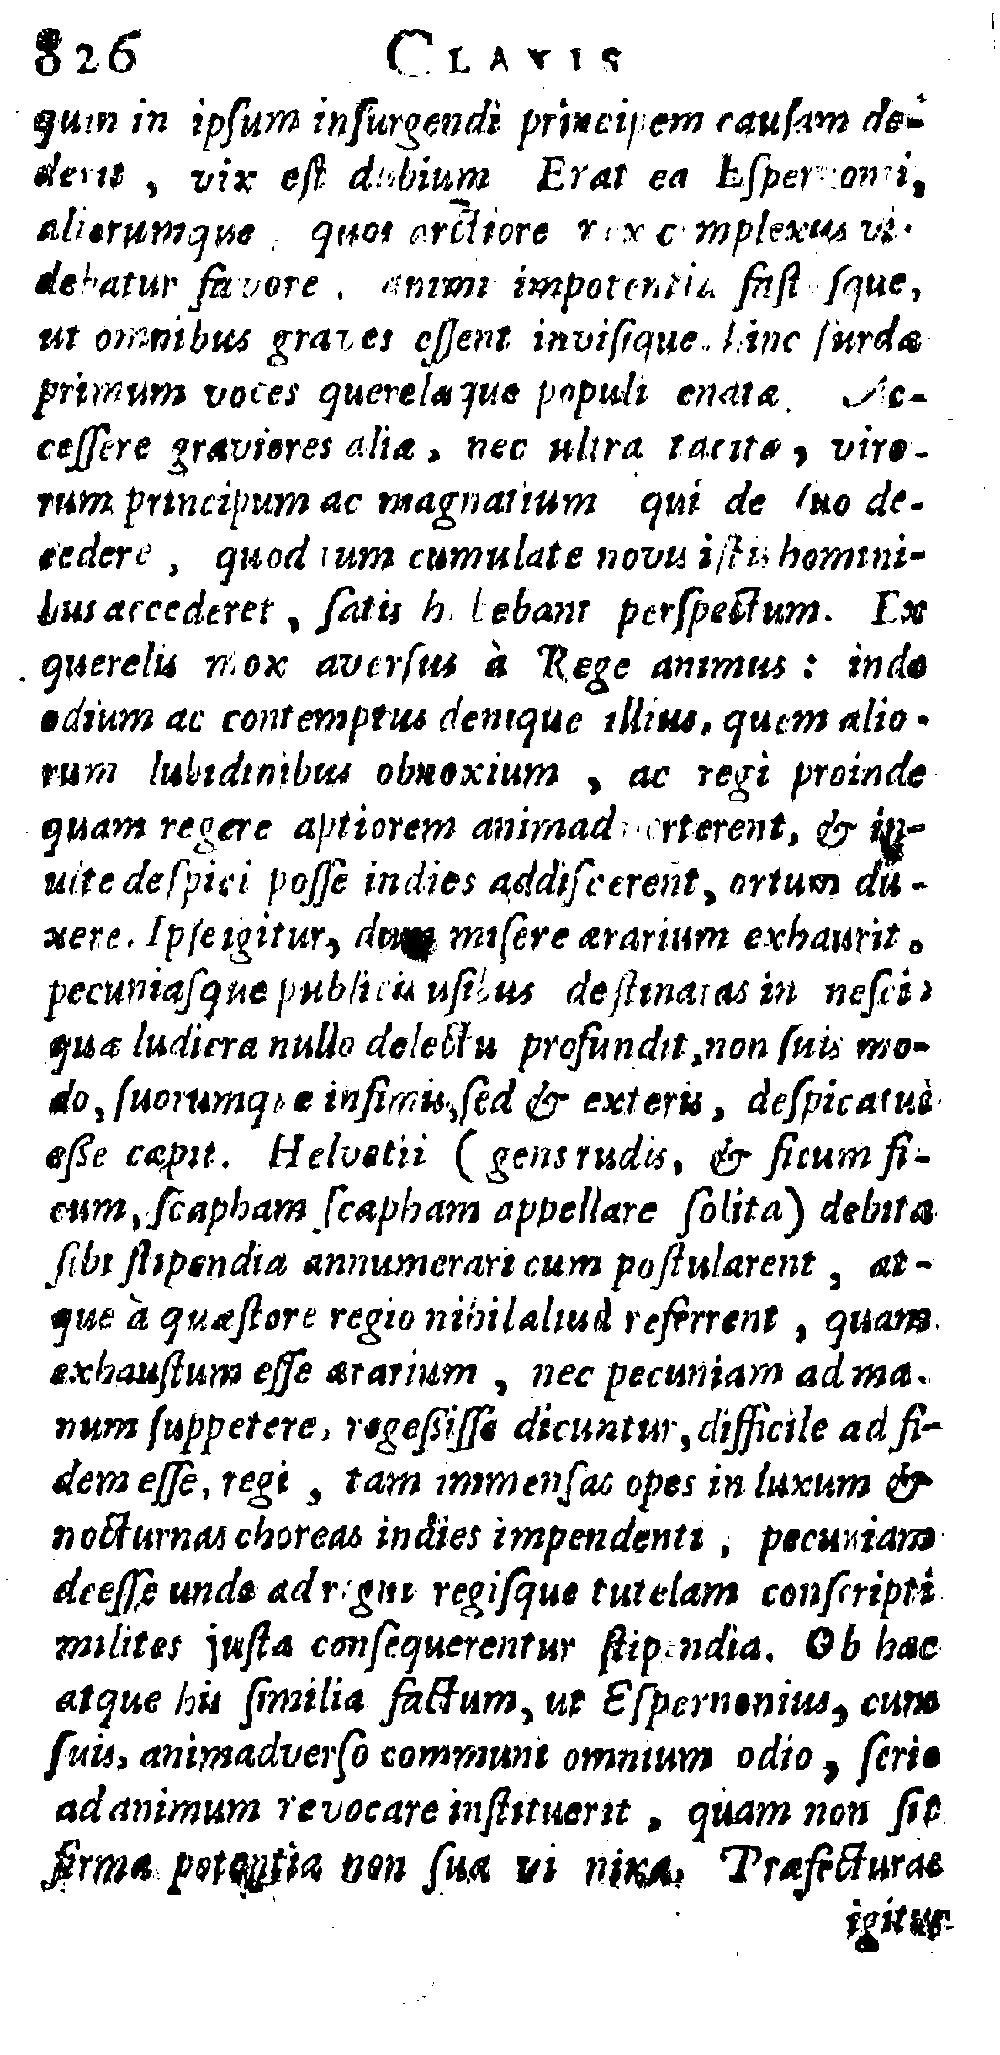 826 CLAVIS
quin in ipſum inſurgendi principem cauſam de-
derit, vix eſt dubium Erat ea Eſpernonii,
aliorumque, quos arctiore rex complexus vi-
debatur favore, animi impotentia faſtuſque,
ut omnibus graves eſſent inviſique. hinc ſurdæ
primum voces querelæque populi enatæ. Ac-
ceſſere graviores aliæ, nec ultra tacitæ, viro-
rum principum ac magnatium qui de ſuo de-
cedere, quod tum cumulate novis iſtis homini-
bus accederet, ſatis habebant perſpectum. Ex
querelis mox averſus à Rege animus: inde
odium ac contemptus denique illius, quem alio-
rum lubidinibus obnoxium, ac regi proinde
quam regere aptiorem animadverterent, & in-
uite deſpici poſſe indies addiſcerent, ortum du-
xere. Ipſe igitur, dum miſere ærarium exhaurit,
pecuniaſque publicis uſibus deſtinatas in neſcio
quæ ludicra nullo delectu profundit, non ſuis mo-
do, ſuorumque infimis, ſed & exteris, deſpicatui
eſſe cœpit. Helvetii (gens rudis, & ficum fi-
cum, ſcapham ſcapham appellare ſolita) debita
ſibi ſtipendia annumerari cum poſtularent, at-
que à quæſtore regio nihil aliud referrent, quam
exhauſtum eſſe ærarium, nec pecuniam ad ma-
num ſuppetere, regeſſiſſe dicuntur, difficile ad fi-
dem eſſe, regi, tam immenſas opes in luxum &
nocturnas choreas indies impendenti, pecuniam
deeſſe unde ad regni regiſque tutelam conſcripti
milites juſta conſequerentur ſtipendia. Ob hæc
atque his ſimilia factum, ut Eſpernonius, cum
ſuis, animadverſo communi omnium odio, ſerio
ad animum revocare inſtituerit, quam non ſit
firma potentia non ſua vi nixa. Præfecturæ
igitur